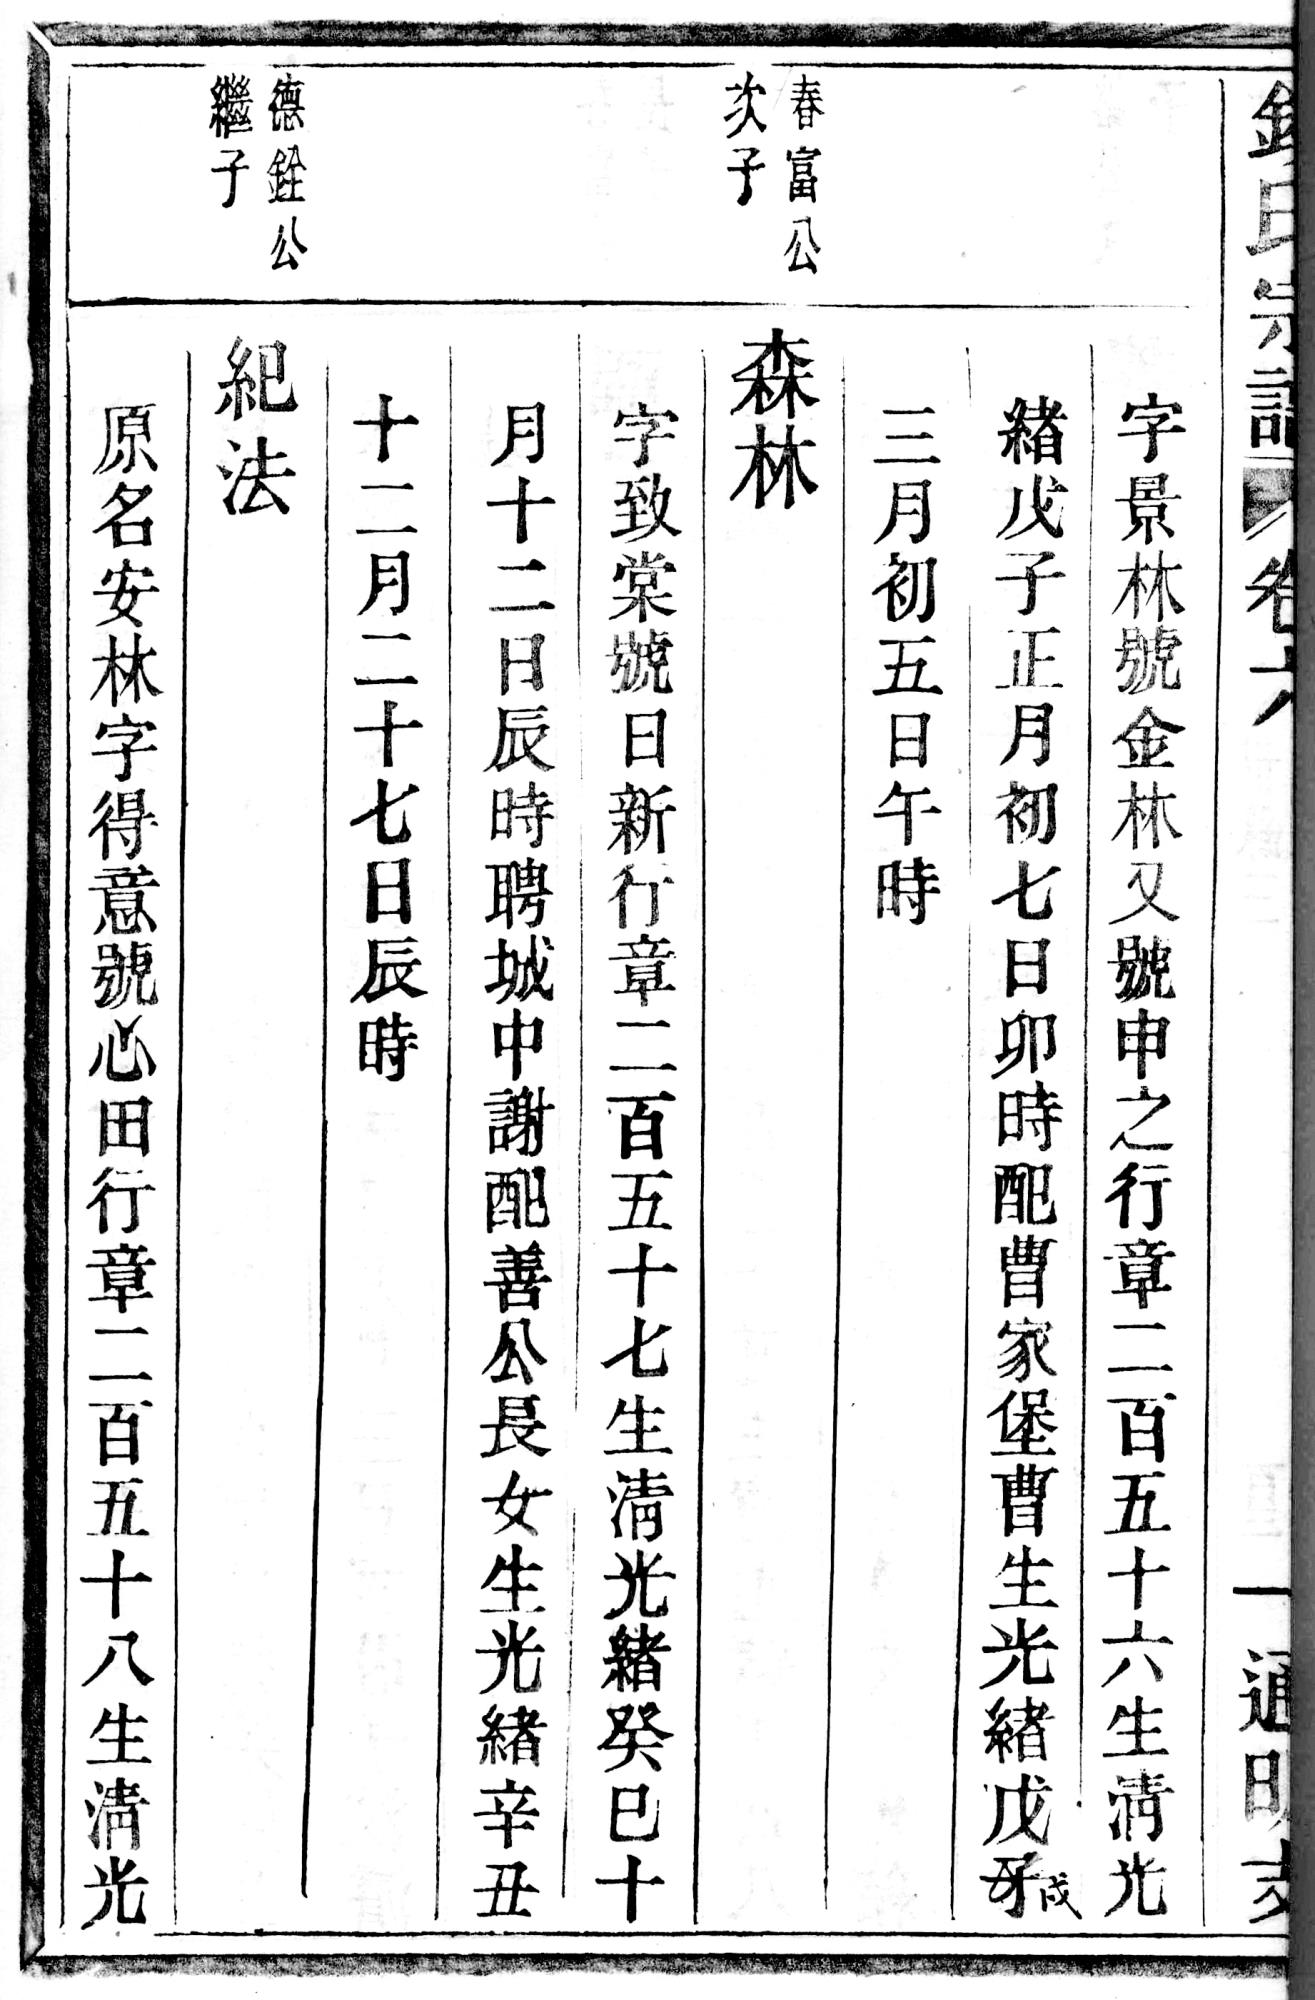 氏宗譜
卷六
一
通明支
字景林號金林又號申之行章二百五十六生清光
緒戊子正月初七日卯時配曹家堡曹生光緒戊戌
三月初五日午時
春富公
次子
森林
字致棠號日新行章二百五十七生清光緒癸巳十
月十二日辰時聘城中謝配善公長女生光緒辛丑
十二月二十七日辰時
德銓公
繼子
紀法
原名安林字得意號心田行章二百五十八生清光